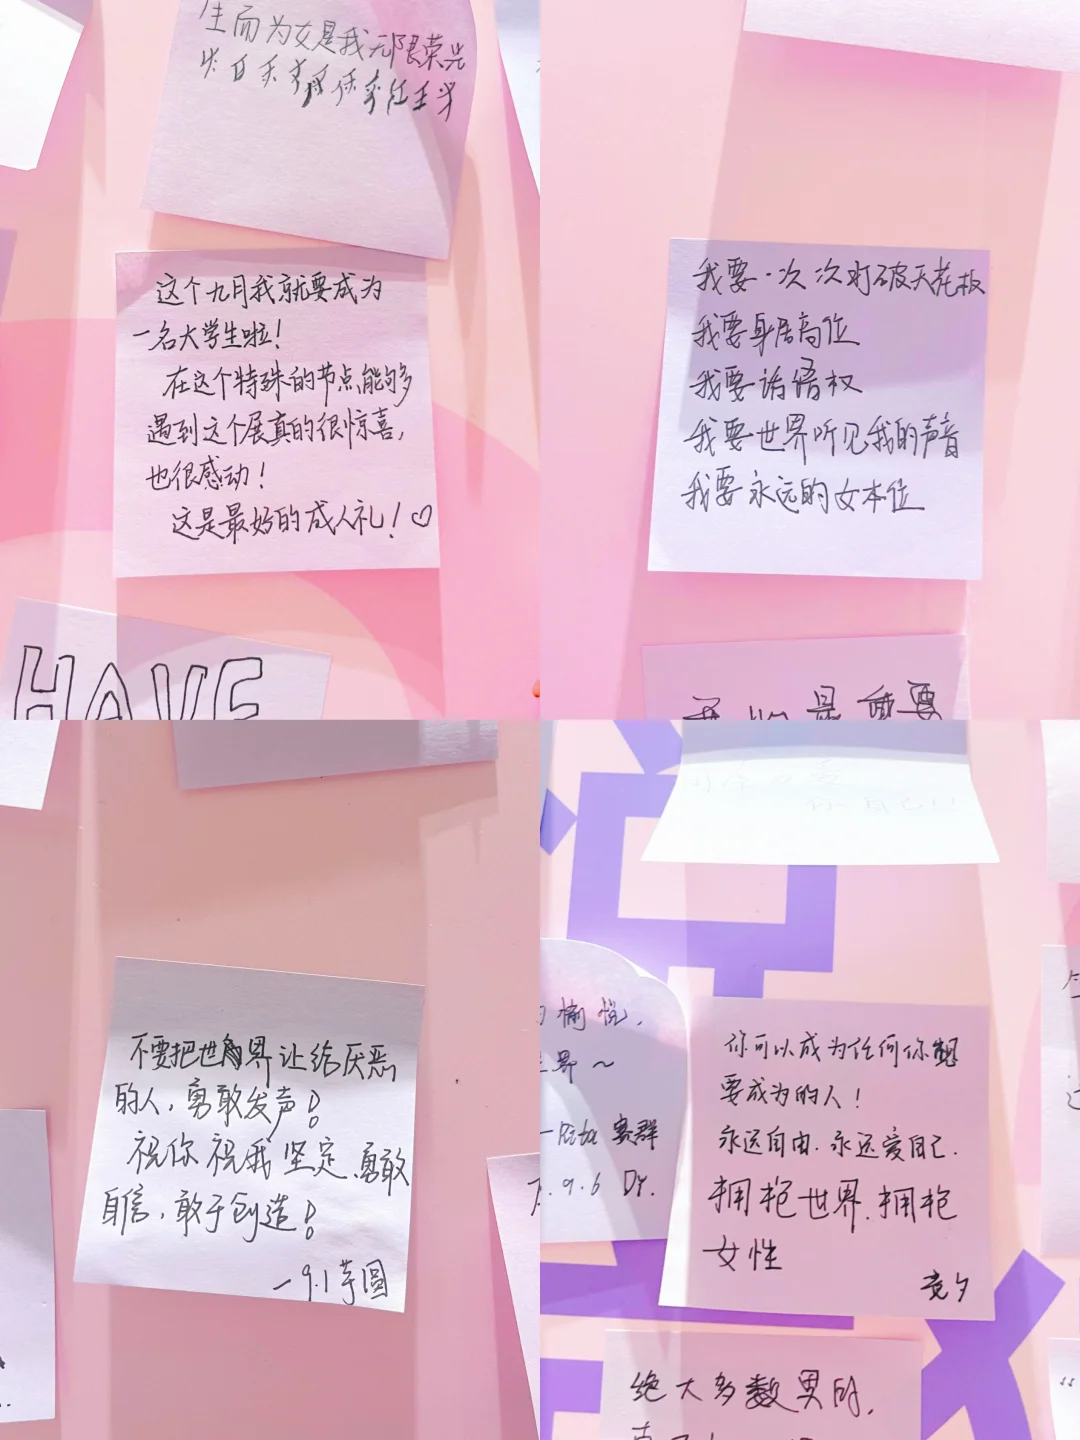 生而为女是我无限荣光
这个九月我就要成为
一名大学生啦!
在这个特殊的节点能够
遇到这个展真的很惊喜,
也很感动!
这是最好的成人礼!♡
HAVE
我要一次次打破天花板
我要身居高位
我要话语权
我要世界听见我的声音
我要永远的女本位
是 重要
不要把世界让给厌恶
的人,勇敢发声!
祝你祝我坚定、勇敢
自信,敢于创造!
—9.1芋圆
愉悦,
界~
9.6 DY.
你可以成为任何你想
要成为的人!
永远自由.永远爱自己.
拥抱世界.拥抱
女性
竞夕
绝大多数男的,